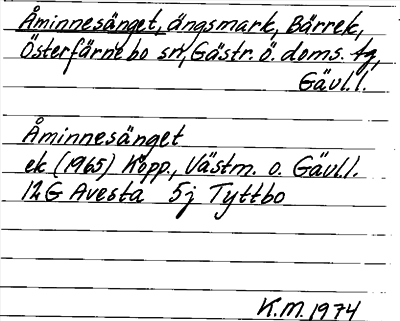 Åminnesänget, ängsmark, Bärrek,
Österfärnebo sn, Gästr. ö. doms. tg,
Gävl.l.
Åminnesänget
ek (1965) Kopp., Västm. o. Gävl.l.
12G Avesta 5j Tyttbo
K.M. 1974